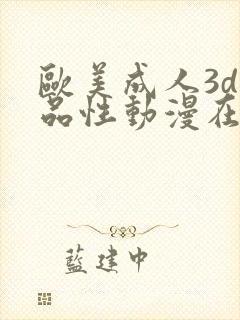 歐美成人3d
品性動漫在
藍建中